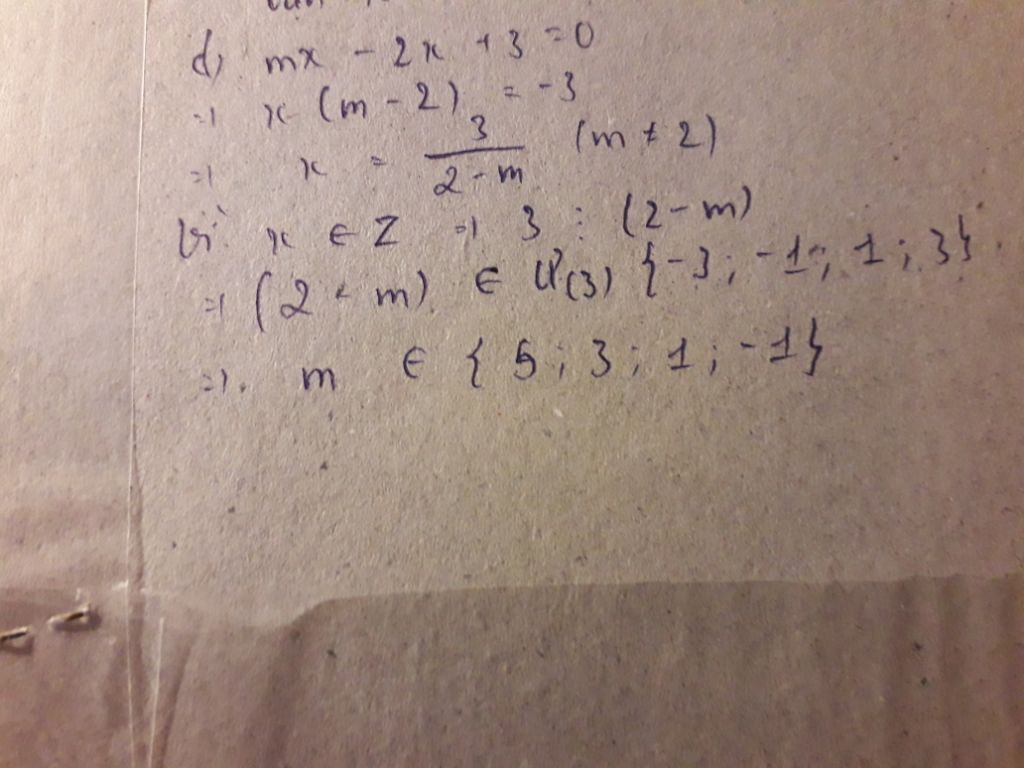 d) mx - 2x + 3 = 0
=> x (m - 2) = -3
=> x = 3 / (2 - m) (m ≠ 2)
Vì x ∈ Z => 3 ⋮ (2 - m)
=> (2 - m) ∈ Ư(3) {-3; -1; 1; 3}.
=> m ∈ {5; 3; 1; -1}